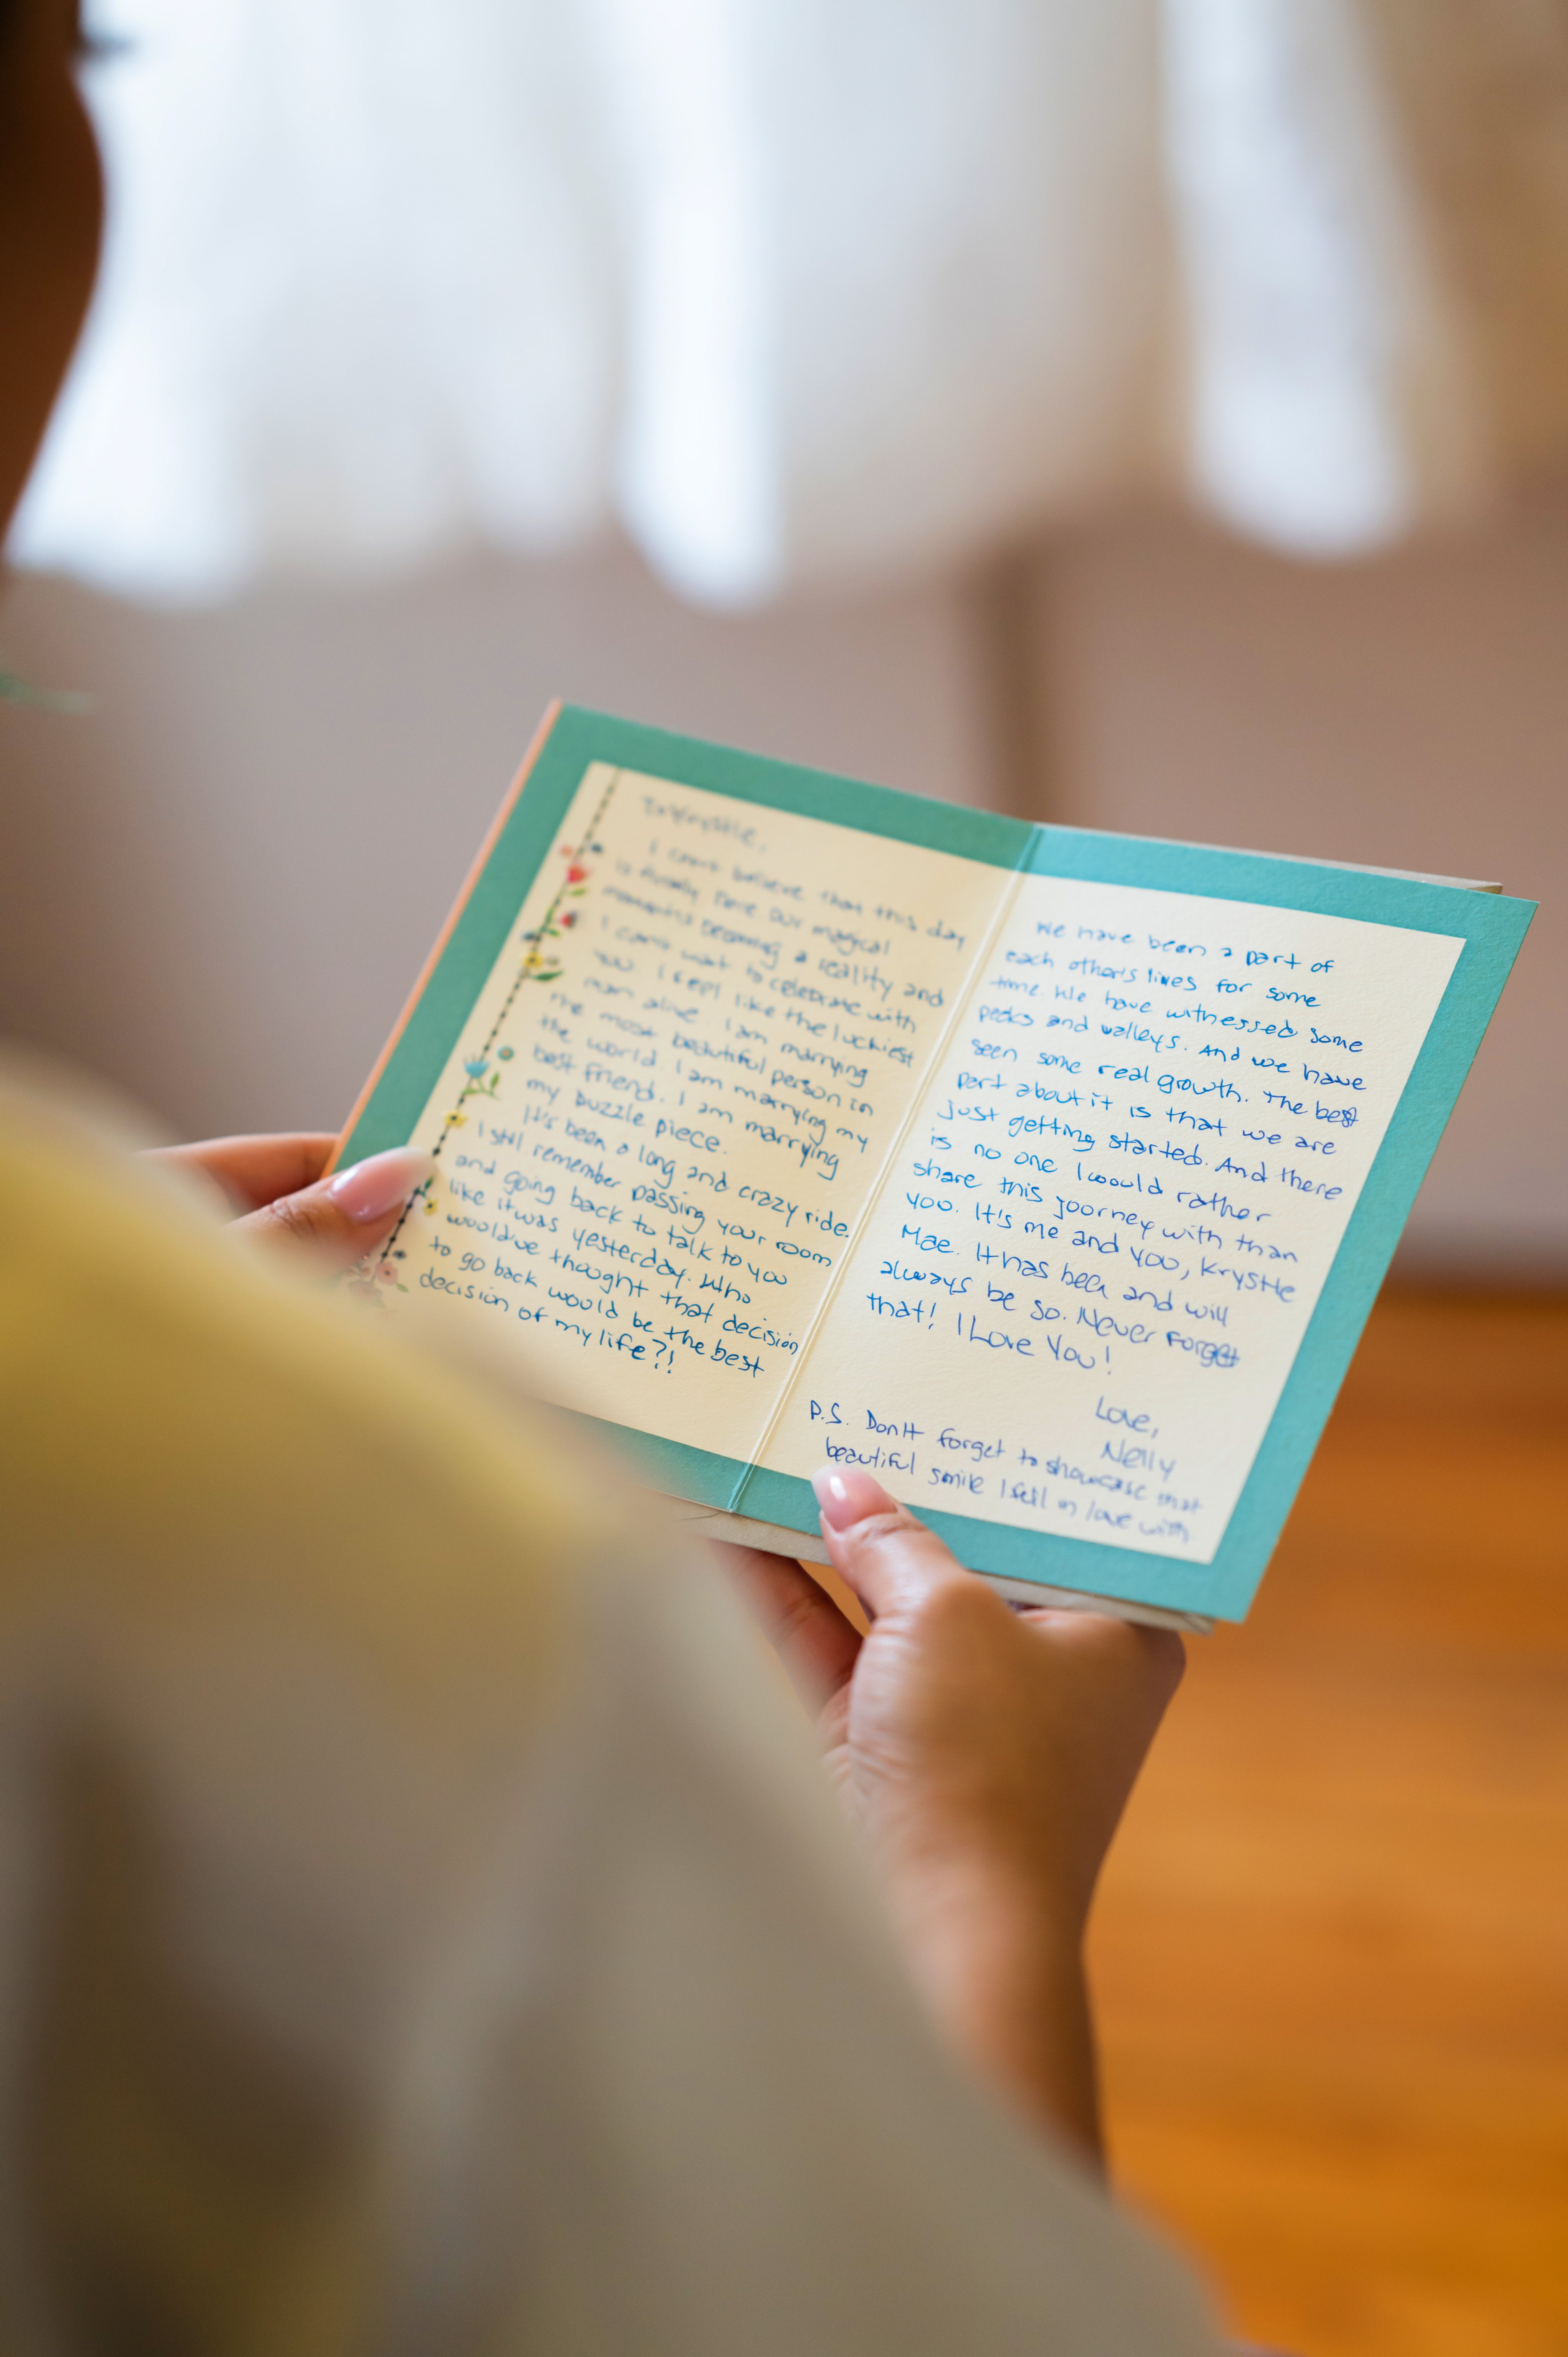 To Krystle,
I can't believe that this day
is finally here. Our magical
moment is becoming a reality and
I can't wait to celebrate with
you. I feel like the luckiest
man alive. I am marrying
the most beautiful person in
the world. I am marrying my
best friend. I am marrying
my puzzle piece.
It's been a long and crazy ride.
I still remember passing your room
and going back to talk to you
like it was yesterday. Who
would've thought that decision
to go back would be the best
decision of my life?!
We have been a part of
each other's lives for some
time. We have witnessed some
peaks and valleys. And we have
seen some real growth. The best
part about it is that we are
just getting started. And there
is no one I would rather
share this journey with than
you. It's me and you, Krystle
Mae. It has been and will
always be so. Never forget
that! I Love You!
Love,
Nelly
P.S. Don't forget to showcase that
beautiful smile I fell in love with